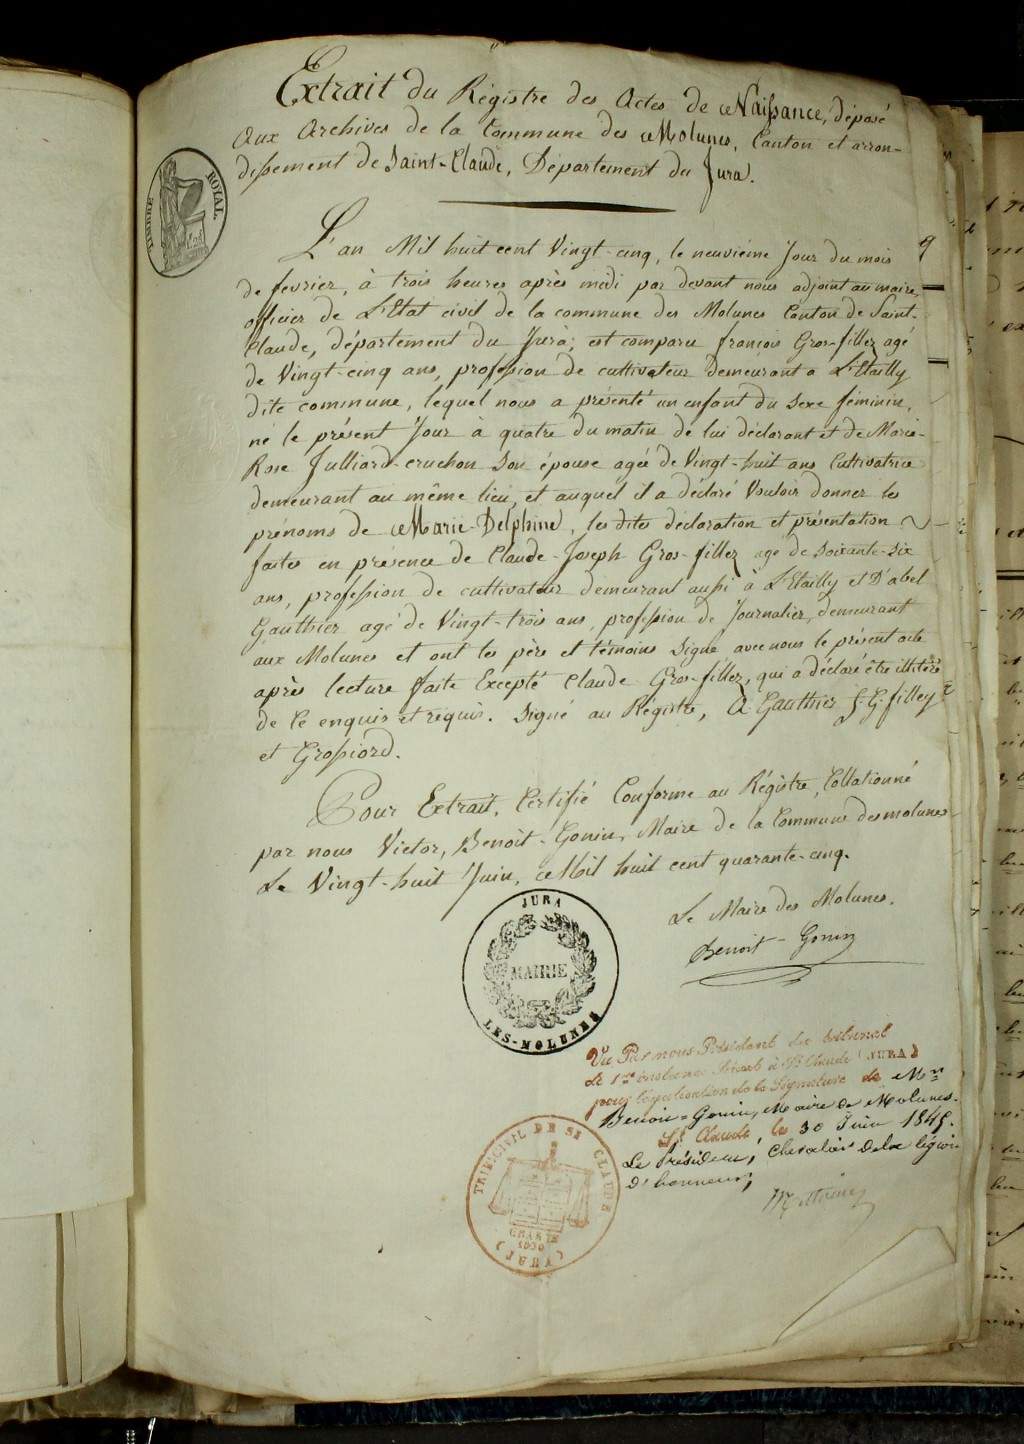 Extrait du Régistre des Actes de Naissance, déposé
Aux Archives de la Commune des Molunes, Canton et arron-
dissement de Saint-Claude, Département du Jura.
TIMBRE ROYAL
L'an Mil huit cent Vingt-cinq, le neuvième Jour du mois
de fevrier, à trois heures après midi par devant nous adjoint au maire,
officier de L'Etat civil de la commune des Molunes Canton de Saint-
Claude, département du Jura; est comparu françois Gros-fillez agé
de Vingt-cinq ans, profession de cultivateur demeurant a L'Etailly
dite commune, lequel nous a présenté un enfant du sexe féminin,
né le présent Jour à quatre du matin de lui déclarant et de Marie-
Rose Julliard-cruchon Son épouse agée de Vingt-huit ans Cultivatrice
demeurant au même lieu, et auquel il a déclaré Vouloir donner les
prénoms de Marie-Delphine, les dites déclaration et présentation
faites en présence de Claude-Joseph Gros-fillez agé de soixante-six
ans, profession de cultivateur demeurant aussi à L'Etailly et D'abel
Gauthier agé de Vingt-trois ans, profession de Journalier, demeurant
aux Molunes et ont les père et témoins Signé avec nous le présent acte
après lecture faite Excepté Claude Gros-fillez, qui a déclaré être illitéré
de ce enquis et réquis. Signé au Régistre, A. Gauthier f. G. filley
et Grossiord.
Pour Extrait, Certifié Conforme au Régistre, Collationné
par nous Victor, Benoit-Gonin, Maire de la Commune des molunes
Le Vingt-huit Juin, Mil huit cent quarante-cinq.
Le Maire des Molunes.
Benoit-Gonin
JURA
MAIRIE
LES-MOLUNES
Vu Par nous Président du tribunal
de 1ere instance séant à St Claude (JURA)
pour légalisation de la Signature de Mr
Benoit-Gonin, Maire de Molunes.
St Claude, le 30 Juin 1845.
Le Président, Chevalier de la légion
d'honneur,
TRIBUNAL DE St CLAUDE
CHARTE
1830
(JURA)